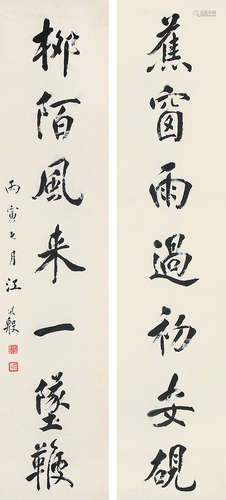 蕉窗雨過初安硯
柳陌風来一墜鞭
丙寅七月江